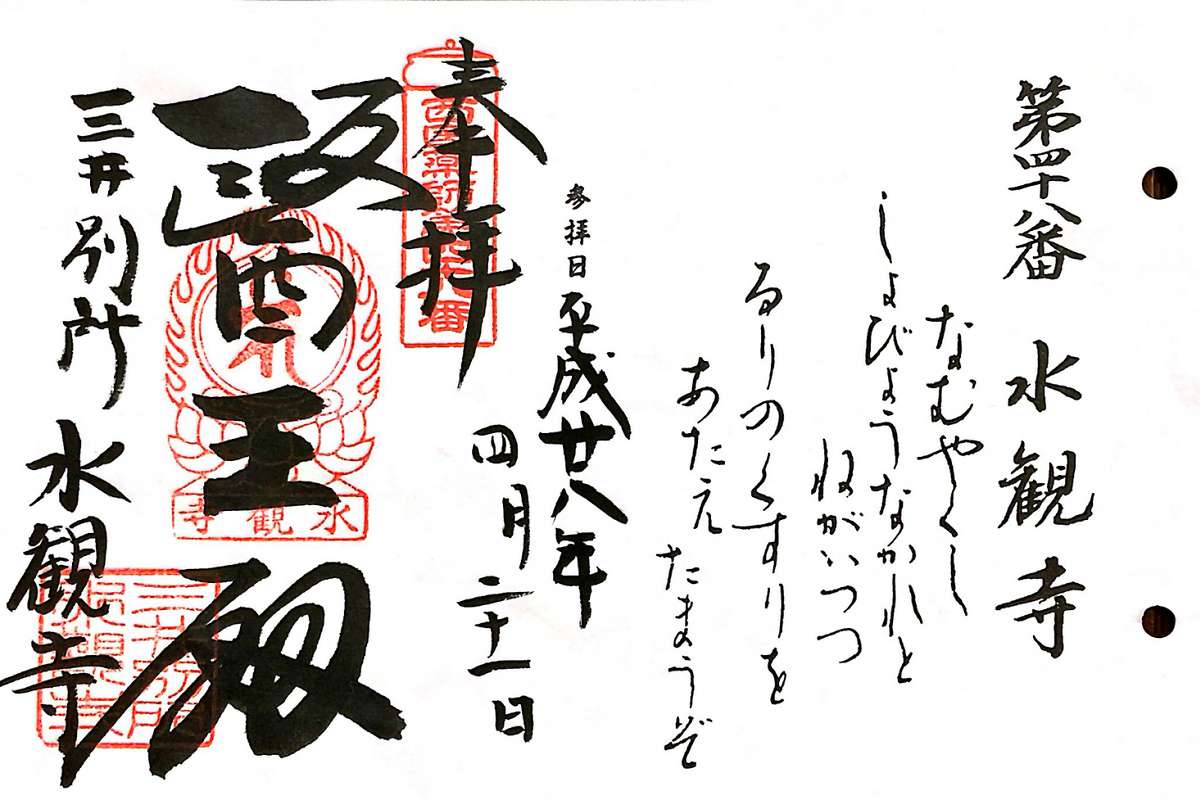 第四十八番 水観寺
なむやくし
しょびょうなかれと
ねがいつつ
るりのくすりを
あたえ たまうぞ
参拝日 平成廿八年
四月二十一日
奉拝
西国薬師
番
醫王殿
水観寺
三井別所 水観寺
三井別所水観寺